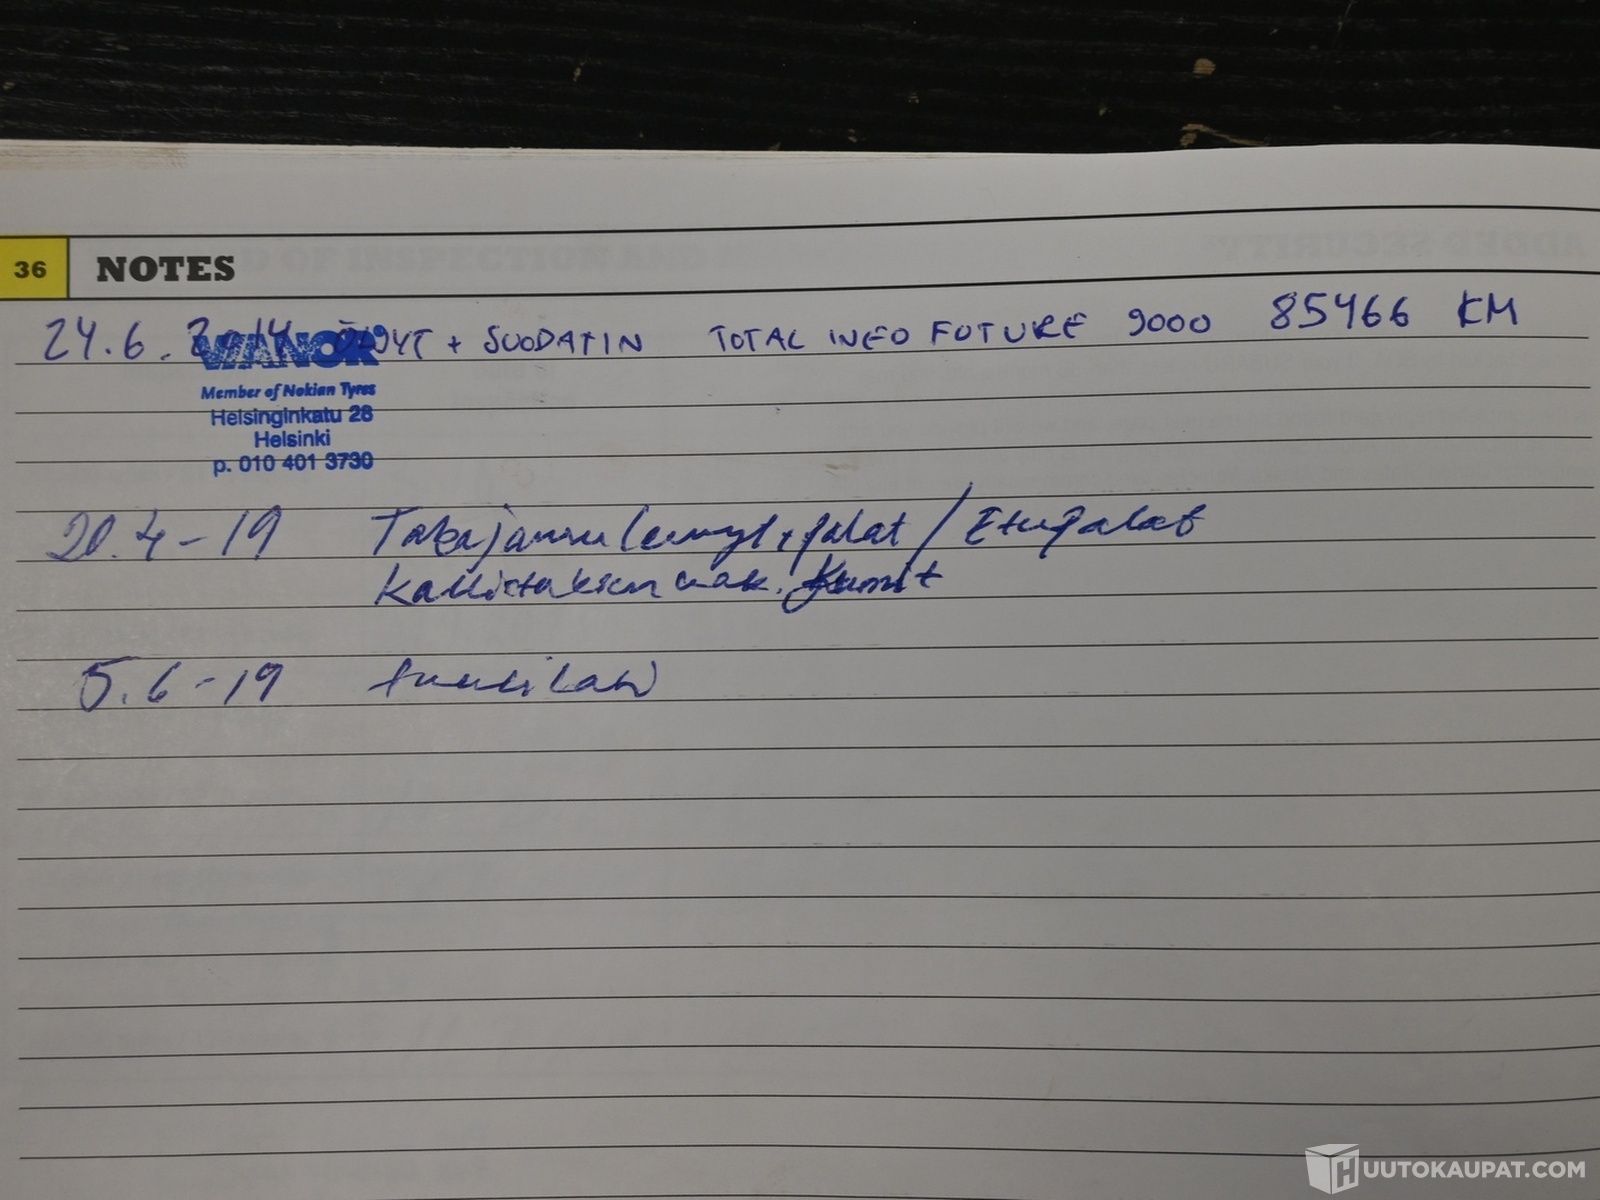 36 NOTES
24.6.2014 ÖLJYT + SUODATIN TOTAL INEO FUTURE 9000 85466 KM
VIANOR
Member of Nokian Tyres
Helsinginkatu 28
Helsinki
p. 010 401 3730
20.4-19 Takajarrulevyt, palat / Etupalat
Kallistuksenvak. Kumit
5.6-19
HUUTOKAUPAT.COM